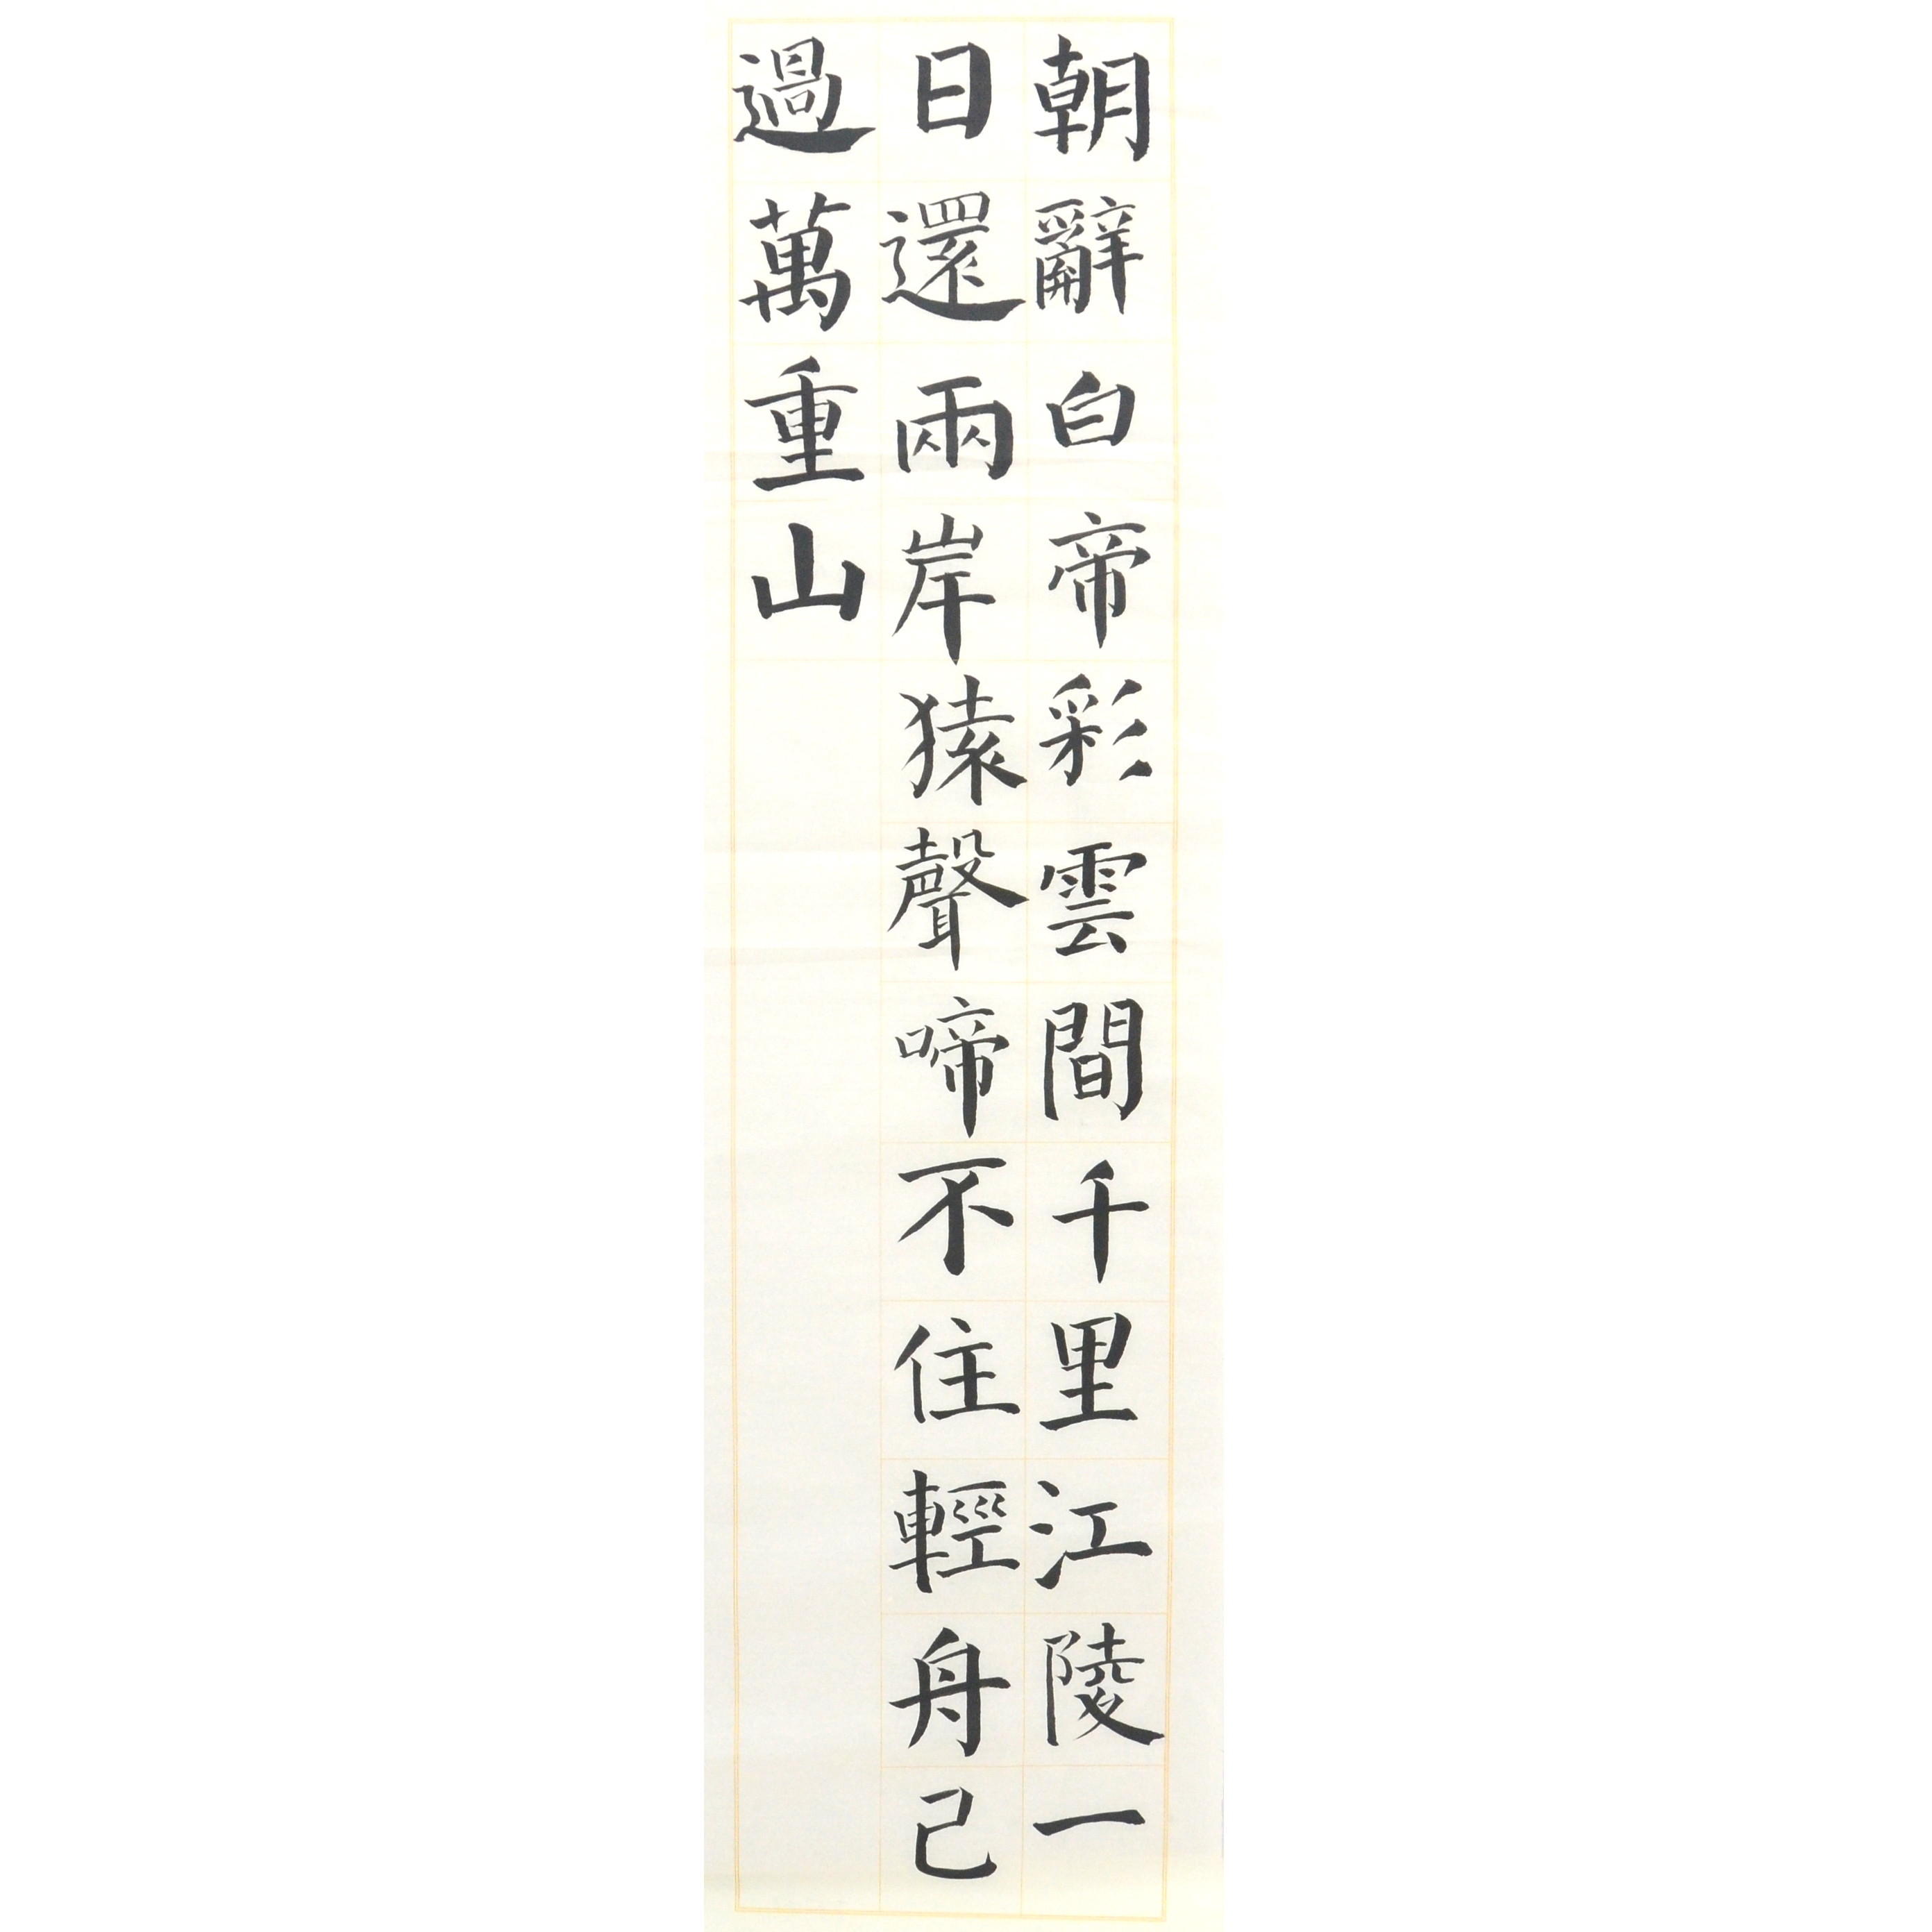 朝辭白帝彩雲間千里江陵一
日還兩岸猿聲啼不住輕舟己
過萬重山